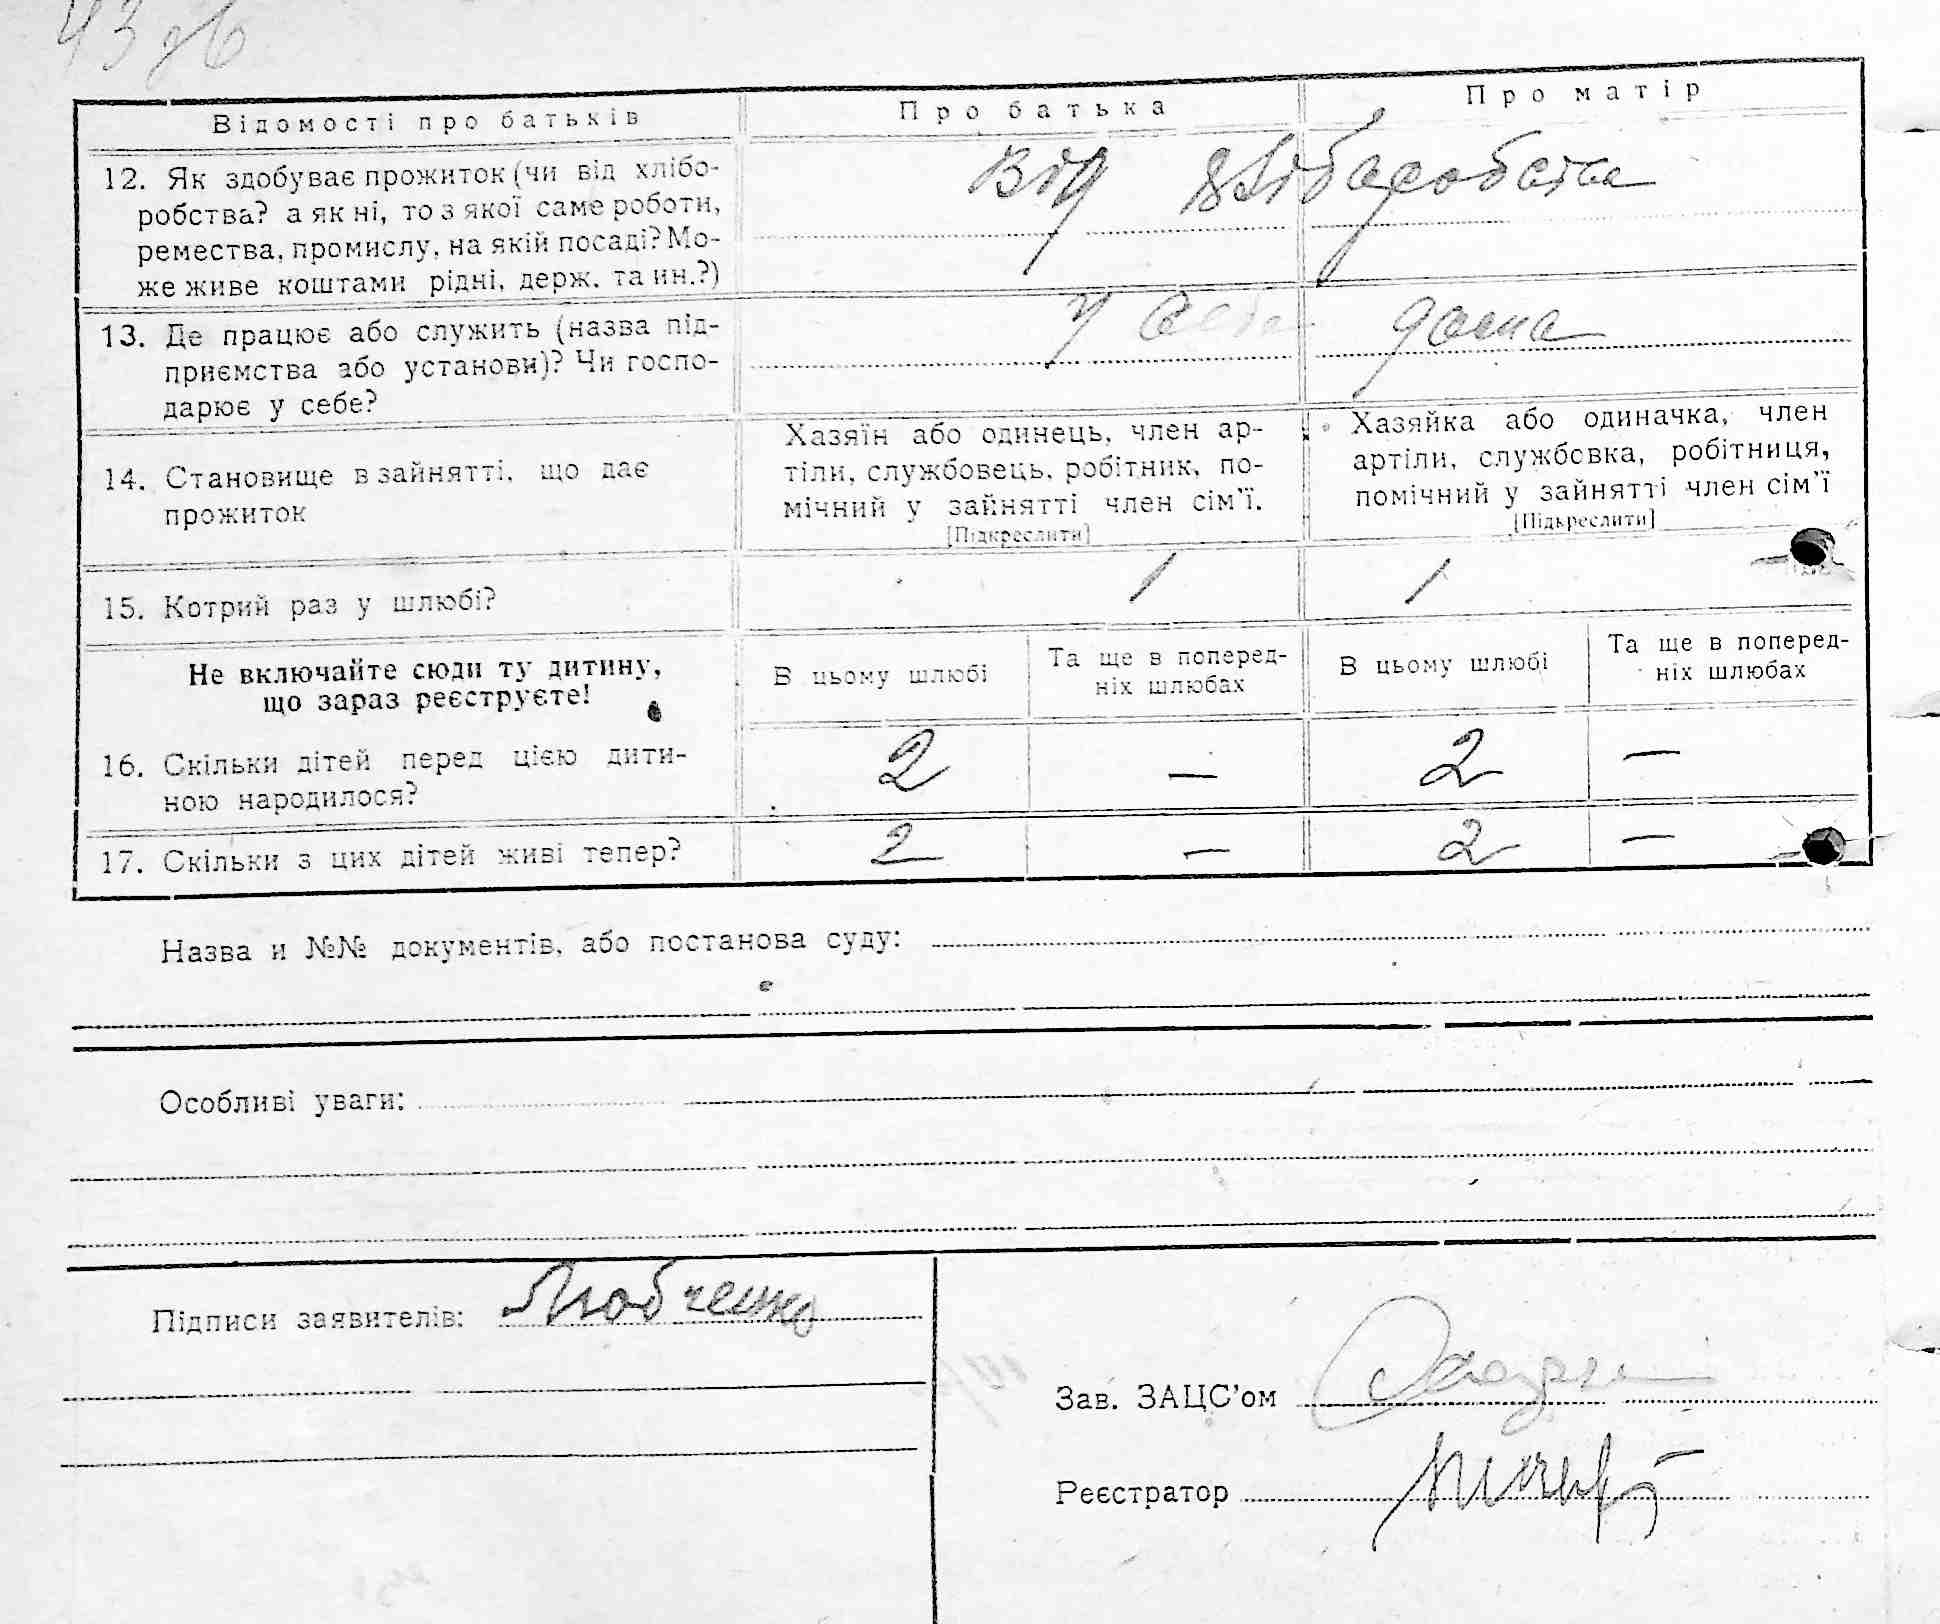 43 зв
Відомості про батьків
Про батька
Про матір
12. Як здобуває прожиток (чи від хлібо-
робства? а як ні, то з якої саме роботи,
ремества, промислу, на якій посаді? Мо-
же живе коштами рідні, держ. та ин.?)
Від хлібаробства
13. Де працює або служить (назва під-
приємства або установи)? Чи госпо-
дарює у себе?
У себе дома
14. Становище в зайнятті, що дає
прожиток
Хазяїн або одинець, член ар-
тіли, службовець, робітник, по-
мічний у зайнятті член сім'ї.
[Підкреслити]
Хазяйка або одиначка, член
артіли, службовка, робітниця,
помічний у зайнятті член сім'ї
[Підкреслити]
15. Котрий раз у шлюбі?
1
1
Не включайте сюди ту дитину,
що зараз реєструєте!
В цьому шлюбі
Та ще в поперед-
ніх шлюбах
В цьому шлюбі
Та ще в поперед-
ніх шлюбах
16. Скільки дітей перед цією дити-
ною народилося?
2 — 2 —
17. Скільки з цих дітей живі тепер?
2 — 2 —
Назва и №№ документів, або постанова суду:
Особливі уваги:
Підписи заявителів: Любченко
Зав. ЗАЦС'ом
Реєстратор